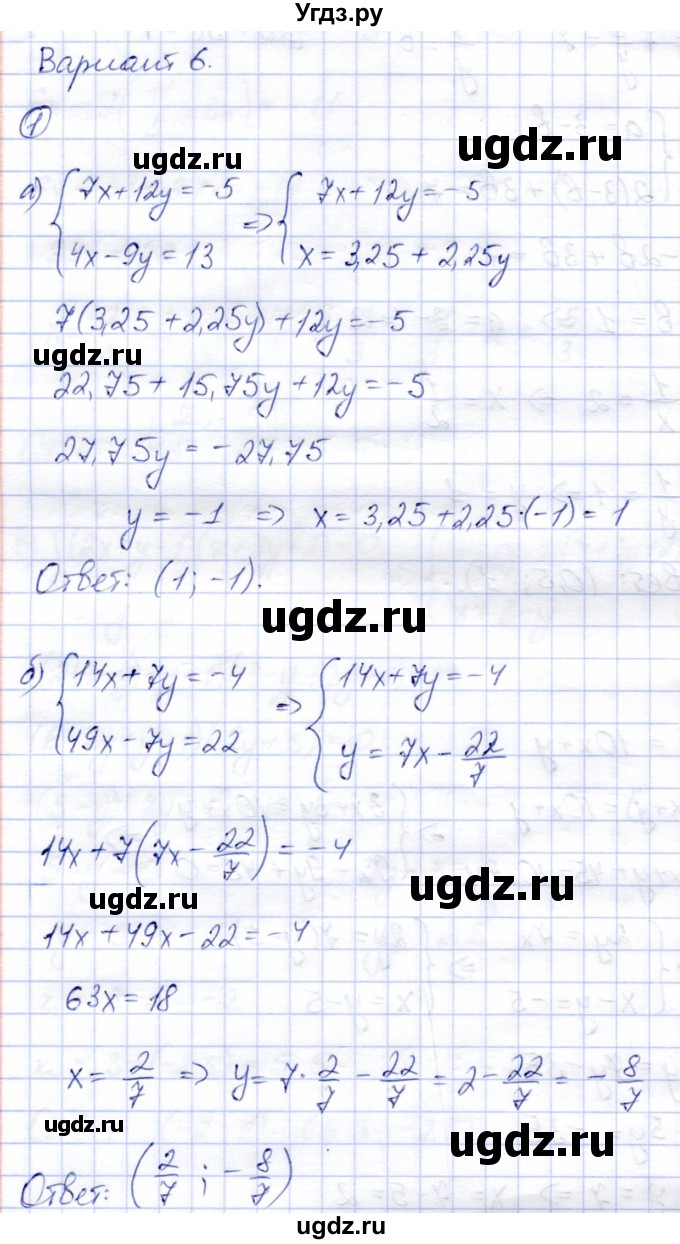 Угдз.ру
Вариант 6.
1
ugdz.ru
ugdz.ru
а) { 7x+12y=-5 => { 7x+12y=-5
4x-9y=13 x=3,25+2,25y
7(3,25+2,25y)+12y=-5
ugdz.ru
22,75+15,75y+12y=-5
27,75y=-27,75
y=-1 => x=3,25+2,25·(-1)=1
Ответ: (1; -1).
ugdz.ru
б) { 14x+7y=-4 => { 14x+7y=-4
49x-7y=22 y=7x-22/7
14x+7(7x-22/7)=-4
ugdz.ru
ugdz.ru
14x+49x-22=-4
63x=18
x=2/7 => y=7·2/7-22/7=2-22/7=-8/7
ugdz.ru
ugdz.ru
Ответ: (2/7; -8/7)
ugdz.ru